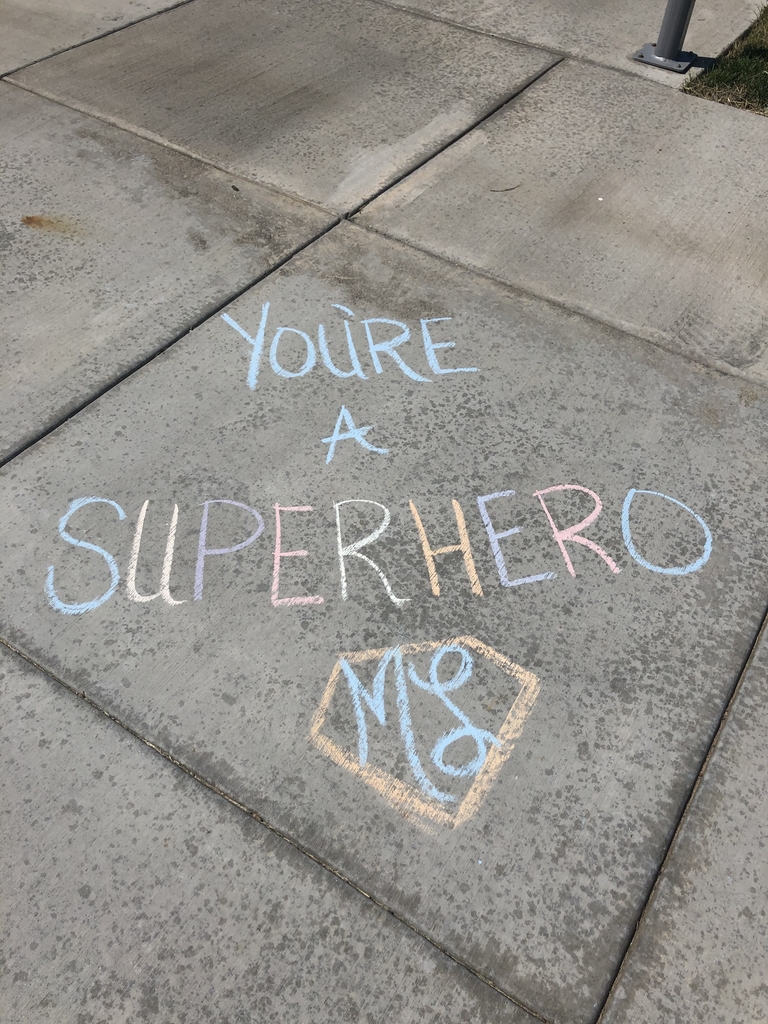 YOU'RE
A
SUPERHERO
MS